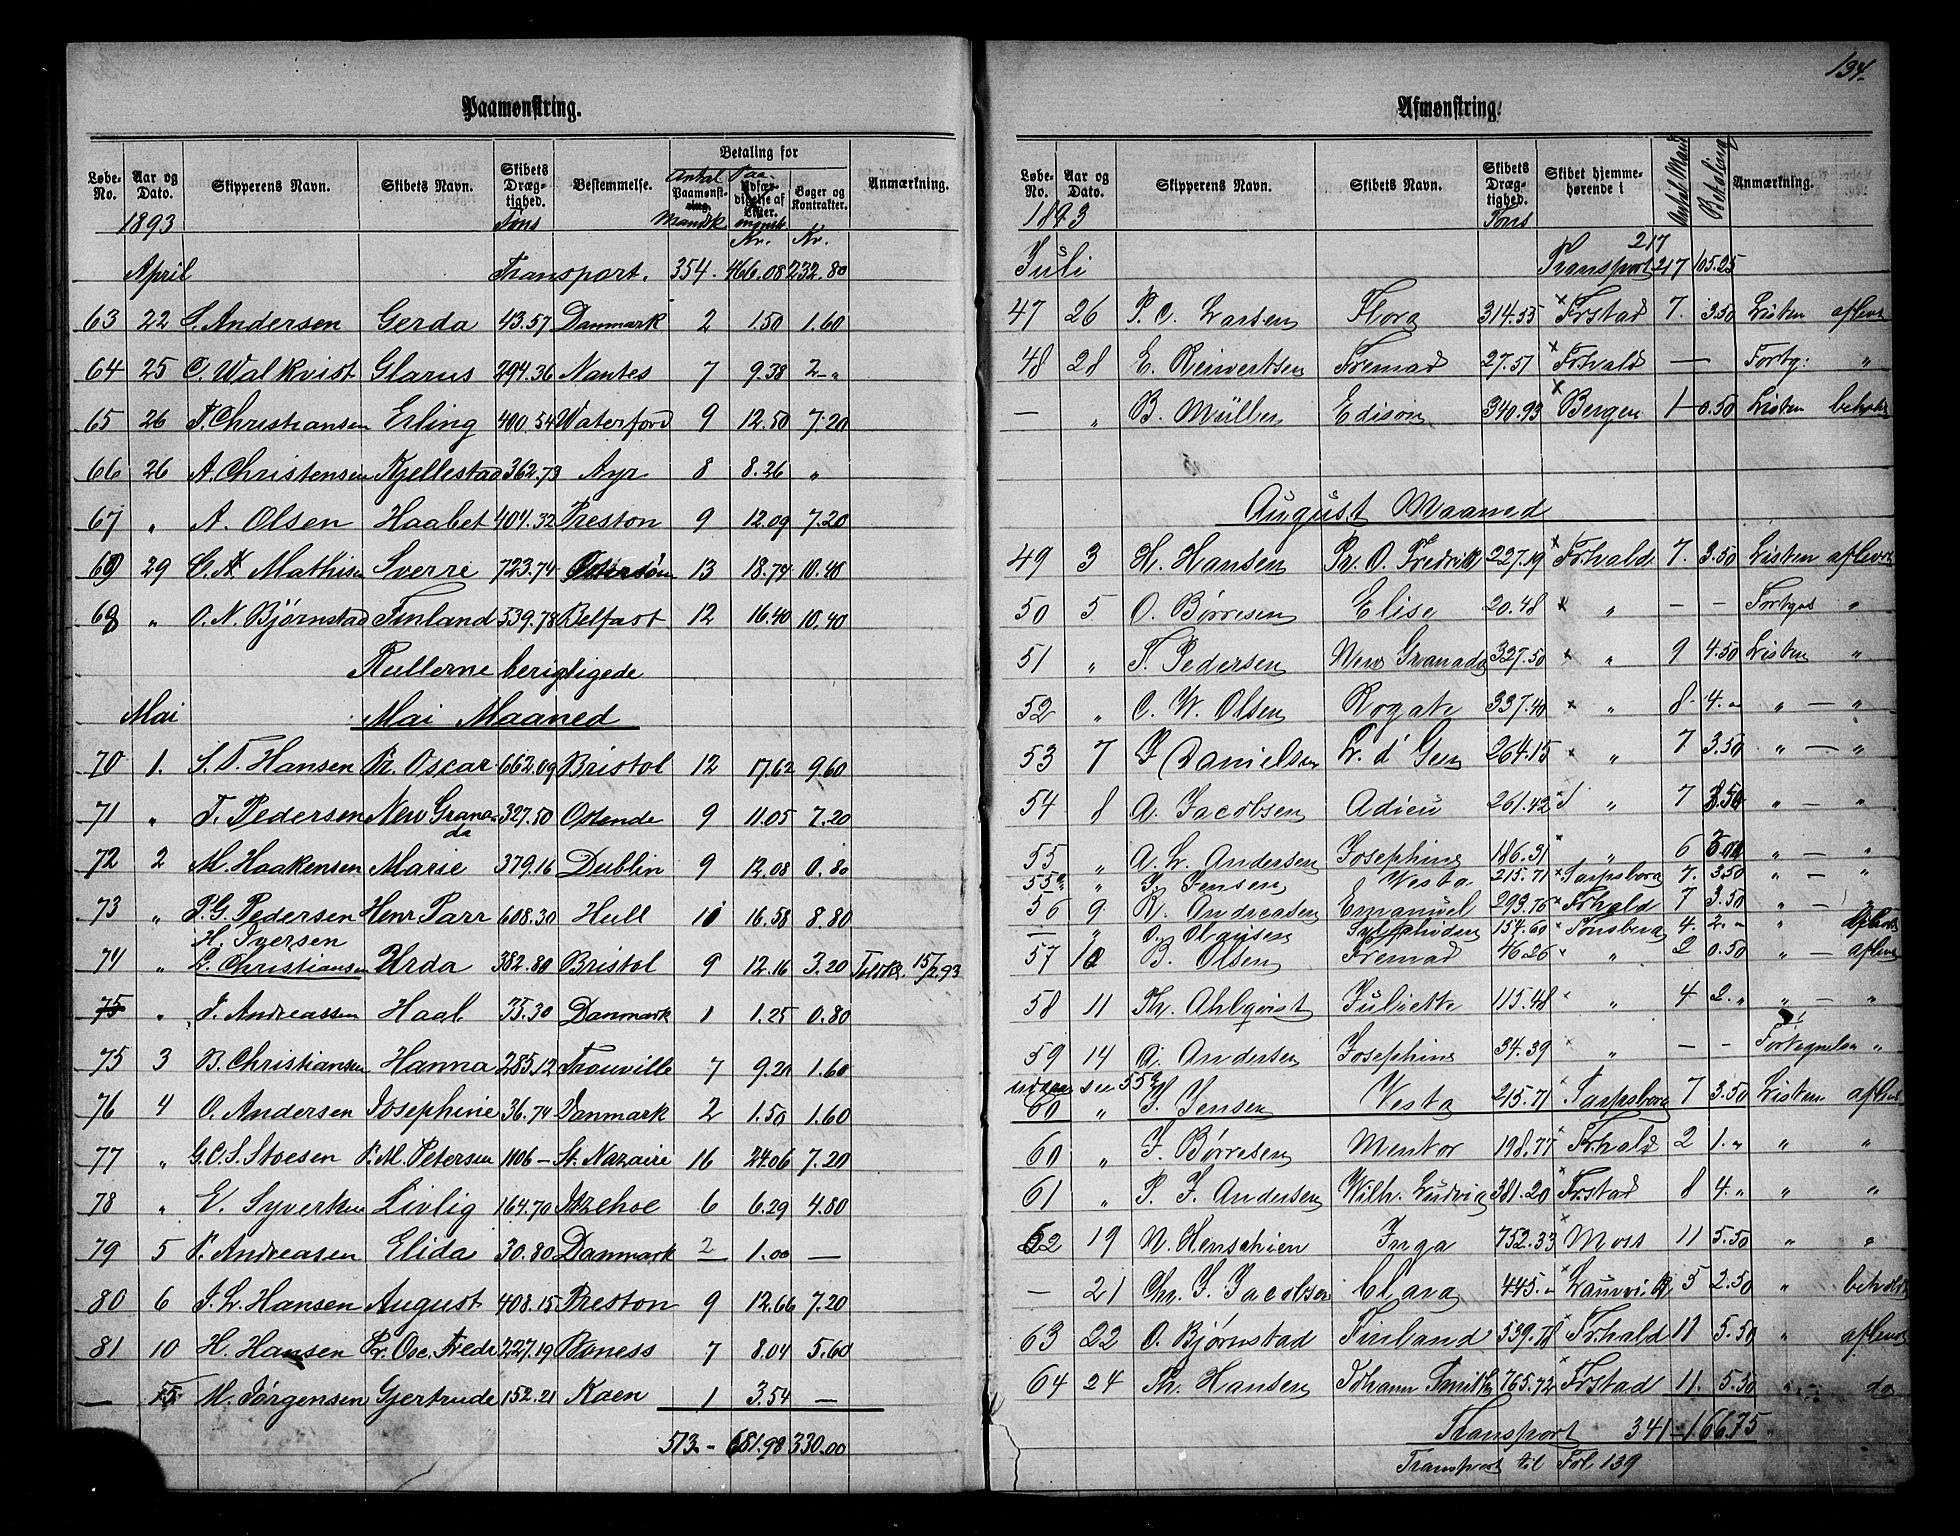 134.
Paamønstring.
Løbe-No. Aar og Dato. Skipperens Navn. Skibets Navn. Skibets Dræg-tighed. Bestemmelse. Betaling for Anmærkning.
Antal Paamønst-ring. Mandsk Paa- Udfær-digelse af Lister. mønstr Bøger og Kontrakter.
1893 Tons Kr. Kr.
April Transport. 354. 466.08 232.80
63 22 S. Andersen Gerda 43.57 Danmark 2 1.50 1.60
64 25 C. Walkvist Glarus 294.36 Nantes 7 9.38 2 - "
65 26 T. Christiansen Erling 400.54 Waterford 9 12.50 7.20
66 26 A. Christensen Kjellestad 362.73 Ayr 8 8.26 "
67 " A. Olsen Haabet 404.32 Preston 9 12.09 7.20
69 29 Mathisen Sverre 723.74 13 18.74 10.40
68 " O. N. Bjørnstad Finland 539.78 Belfast 12 16.40 10.40
Rullerne berigtigede
Mai Mai Maaned
70 1. S. T. Hansen Pr. Oscar 662.09 Bristol 12 17.62 9.60
71 " T. Pedersen New Grana-da 327.50 Ostende 9 11.05 7.20
72 2 M. Haakensen Marie 379.16 Dublin 9 12.08 0.80
73 " P. G. Pedersen Henr Parr 608.30 Hull 10 16.58 8.80
H. Iversen
74 " L. Christiansen Urda 382.80 Bristol 9 12.16 3.20 15/293
75 " J. Andreassen Haab 35.30 Danmark 1 1.25 0.80
75 3 B. Christiansen Hanna 285.12 Trouville 7 9.20 1.60
76 4 O. Andersen Josephine 36.74 Danmark 2 1.50 1.60
77 " G. C. S. Stoesen P. M. Petersen 1106 - St. Nazaire 16 24.06 7.20
78 " E. Syvertsen Livlig 164.70 Itzehoe 6 6.29 4.80
79 5 P. Andreasen Elida 30.80 Danmark 2 1.00 —
80 6 J. L. Hansen August 408.15 Preston 9 12.66 7.20
81 10 H. Hansen Pr. Osc. Fredr 227.19 Boness 7 8.04 5.60
— 15 M. Jørgensen Gjertrude 152.21 Kaen 1 3.54 —
513 - 681.98 330.00
Afmønstring.
Løbe-No. Aar og Dato. Skipperens Navn. Skibets Navn. Skibets Dræg-tighed. Skibet hjemme-hørende i Antal Mand Betaling Anmærkning.
1893 Tons
217
Juli Transport 217 105.25
47 26 P. C. Larsen Flora 314.55 Frstad 7. 3.50 Listen aflevr
48 28 E. Reinertsen Fremad 27.51 Frhald — — Fortg: "
— " B. Müller Edison 340.93 Bergen 1 - 0.50 Listen beholdt
August Maaned
49 3 H. Hansen Pr. O. Fredrik 227.19 Frhald 7. 3.50 Listen aflevr
50 5 O. Børresen Elise 20.48 " — — Fortgs "
51 " T. Pedersen New Granada 327.50 " 9 4.50 Listen "
52 " C. W. Olsen Rogate 337.40 " 8. 4. " " — "
53 7 J. Danielsen L. d' Geer 264.15 " 7 3.50 " — "
54 8 A. Jacobsen Adieu 261.42 " 7 3.50 " — "
55 " A. L. Andersen Josephine 186.31 " 6 3.00 " — "
55a " J. Jensen Vesta 215.71 Sarpsborg 7. 3.50 " — "
56 9 R. Andreasen Emanuel 293.76 Frhald 7 3.50 " — "
— " O. Olausen 154.60 Tønsberg 4. 2. " "
57 10 B. Olsen Fremad 46.26 " 2 0.50 " — aflevr
58 11 Th. Ahlqvist Juliette 115.48 " 4 2. " " — "
59 14 A. Andersen Josephine 34.39 " — — Fortegnelsen "
55a
60 " J. Jensen Vesta 215.71 Sarpsborg 7 3.50 Listen aflev
60 " J. Børresen Mentor 198.77 Frhald 2 1. " " "
61 " P. J. Andersen Wilh. Ludvig 381.20 Frstad 8 4. " " "
62 19 N. Henschien Inga 752.33 Moss 11 5.50 " "
— 21 Chr. J. Jacobsen Clara 445. - Laurvik 5 2.50 " beholdt
63 22 O. Bjørnstad Finland 539.78 Frhald 11 5.50 " aflevr
64 24 Th. Hansen Johann Smith 765.72 Frstad 11. 5.50 " do
Transport 341 - 166.75
Transport til Fol. 139